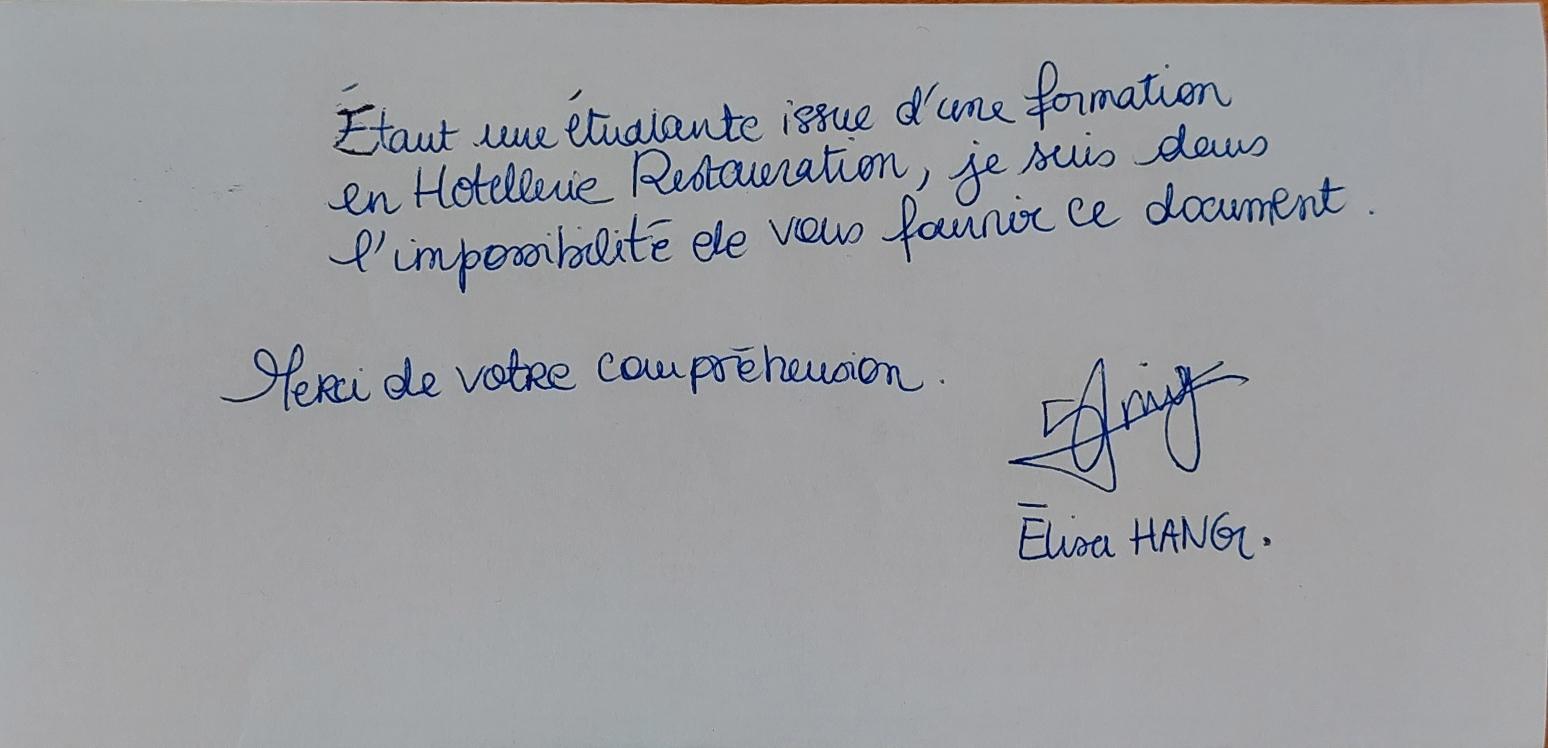 Étant une étudiante issue d'une formation
en Hotellerie Restauration, je suis dans
l'impossibilité de vous fournir ce document.
Merci de votre compréhension.
Élisa HANG.